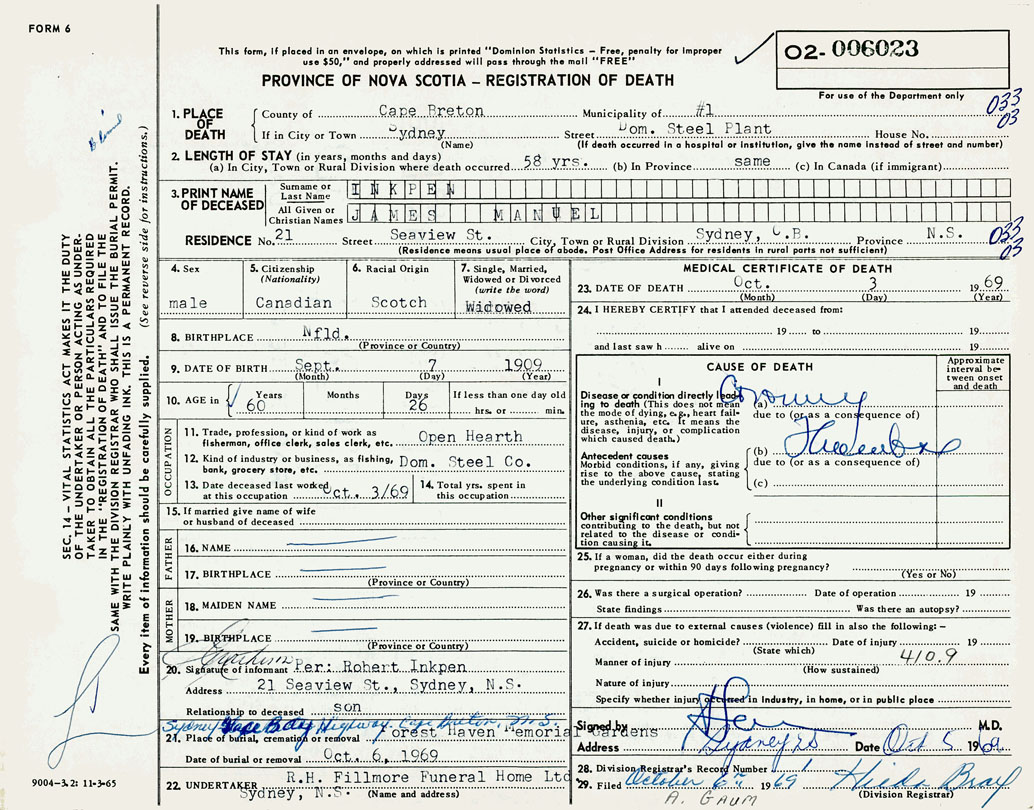 FORM 6
This form, if placed in an envelope, on which is printed "Dominion Statistics – Free, penalty for improper
use $50," and properly addressed will pass through the mail "FREE"
PROVINCE OF NOVA SCOTIA – REGISTRATION OF DEATH
02- 006023
For use of the Department only
033
03
1. PLACE OF DEATH County of Cape Breton Municipality of #1
If in City or Town Sydney Street Dom. Steel Plant House No.
(Name) (If death occurred in a hospital or institution, give the name instead of street and number)
2. LENGTH OF STAY (in years, months and days)
(a) In City, Town or Rural Division where death occurred 58 yrs. (b) In Province same (c) In Canada (if immigrant)
3. PRINT NAME OF DECEASED Surname or Last Name INKPEN
All Given or Christian Names JAMES MANUEL
RESIDENCE No. 21 Street Seaview St. City, Town or Rural Division Sydney, C.B. Province N.S.
(Residence means usual place of abode. Post Office Address for residents in rural parts not sufficient)
033
03
SEC. 14 – VITAL STATISTICS ACT MAKES IT THE DUTY
OF THE UNDERTAKER OR PERSON ACTING AS UNDER-
TAKER TO OBTAIN ALL THE PARTICULARS REQUIRED
IN THE "REGISTRATION OF DEATH" AND TO FILE THE
SAME WITH THE DIVISION REGISTRAR WHO SHALL ISSUE THE BURIAL PERMIT.
WRITE PLAINLY WITH UNFADING INK. THIS IS A PERMANENT RECORD.
Every item of information should be carefully supplied. (See reverse side for instructions.)
4. Sex male
5. Citizenship (Nationality) Canadian
6. Racial Origin Scotch
7. Single, Married, Widowed or Divorced (write the word) Widowed
8. BIRTHPLACE Nfld.
(Province or Country)
9. DATE OF BIRTH Sept. 7 1909
(Month) (Day) (Year)
10. AGE in Years 60 Months Days 26 If less than one day old hrs. or min.
OCCUPATION
11. Trade, profession, or kind of work as
fisherman, office clerk, sales clerk, etc. Open Hearth
12. Kind of industry or business, as fishing,
bank, grocery store, etc. Dom. Steel Co.
13. Date deceased last worked
at this occupation Oct. 3/69
14. Total yrs. spent in
this occupation
15. If married give name of wife
or husband of deceased
FATHER
16. NAME
17. BIRTHPLACE
(Province or Country)
MOTHER
18. MAIDEN NAME
19. BIRTHPLACE
(Province or Country)
20. Signature of informant Per: Robert Inkpen
Address 21 Seaview St., Sydney, N.S.
Relationship to deceased son
Sydney Highway. Cape Breton, N.S.
21. Place of burial, cremation or removal Forest Haven Memorial Gardens
Date of burial or removal Oct. 6, 1969
22. UNDERTAKER R.H. Fillmore Funeral Home Ltd
Sydney, N.S. (Name and address)
MEDICAL CERTIFICATE OF DEATH
23. DATE OF DEATH Oct. 3 1969
(Month) (Day) (Year)
24. I HEREBY CERTIFY that I attended deceased from:
19 to 19
and last saw h alive on 19
CAUSE OF DEATH
Approximate interval between onset and death
I
Disease or condition directly leading
to death (This does not mean
the mode of dying, e.g., heart fail-
ure, asthenia, etc. It means the
disease, injury, or complication
which caused death.)
(a) Coronary
due to (or as a consequence of)
Antecedent causes
Morbid conditions, if any, giving
rise to the above cause, stating
the underlying condition last.
(b) Thrombosis
due to (or as a consequence of)
(c)
II
Other significant conditions
contributing to the death, but not
related to the disease or condi-
tion causing it.
25. If a woman, did the death occur either during
pregnancy or within 90 days following pregnancy?
(Yes or No)
26. Was there a surgical operation? Date of operation 19
State findings Was there an autopsy?
27. If death was due to external causes (violence) fill in also the following: –
Accident, suicide or homicide? Date of injury 19
(State which)
410.9
Manner of injury
(How sustained)
Nature of injury
Specify whether injury occurred in Industry, in home, or in public place
Signed by M.D.
Address Sydney NS Date Oct 5 1969
28. Division Registrar's Record Number
29. Filed October 6th 1969 Hilda Bray
(Division Registrar)
A. GAUM
9004-3.2: 11-3-65